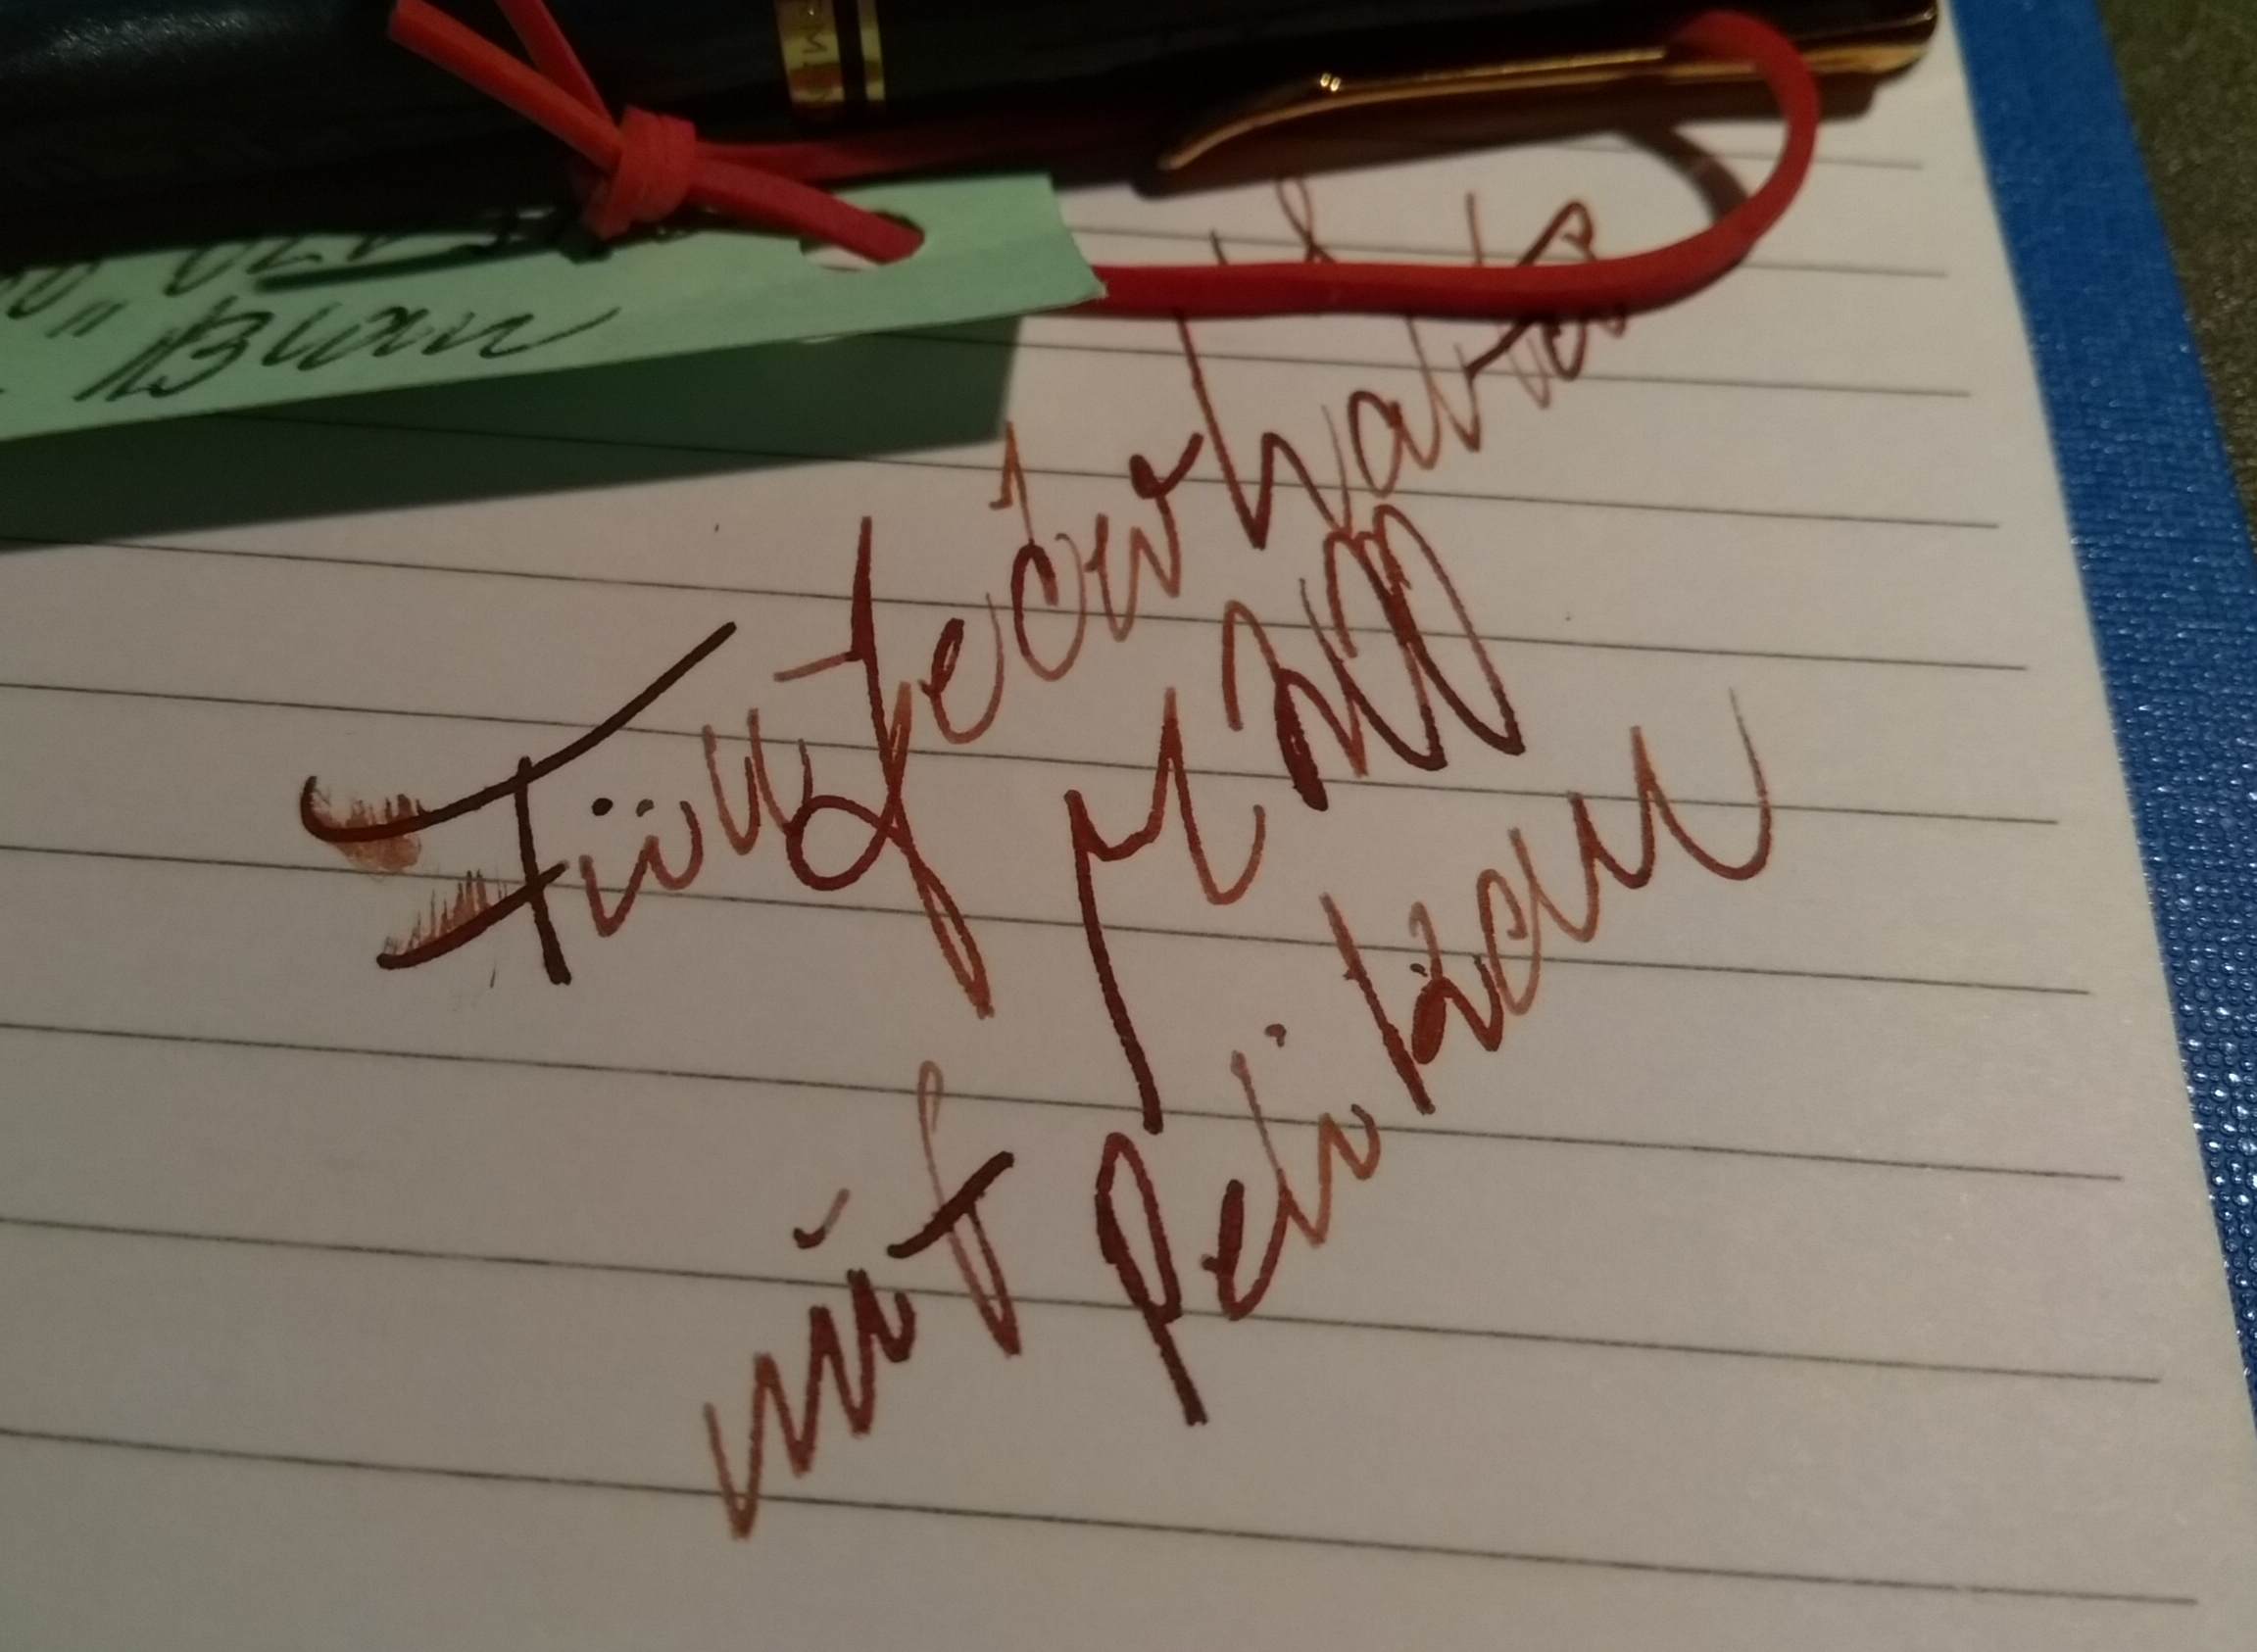 Blau
Füllfederhalter
M 200
mit Pelikan